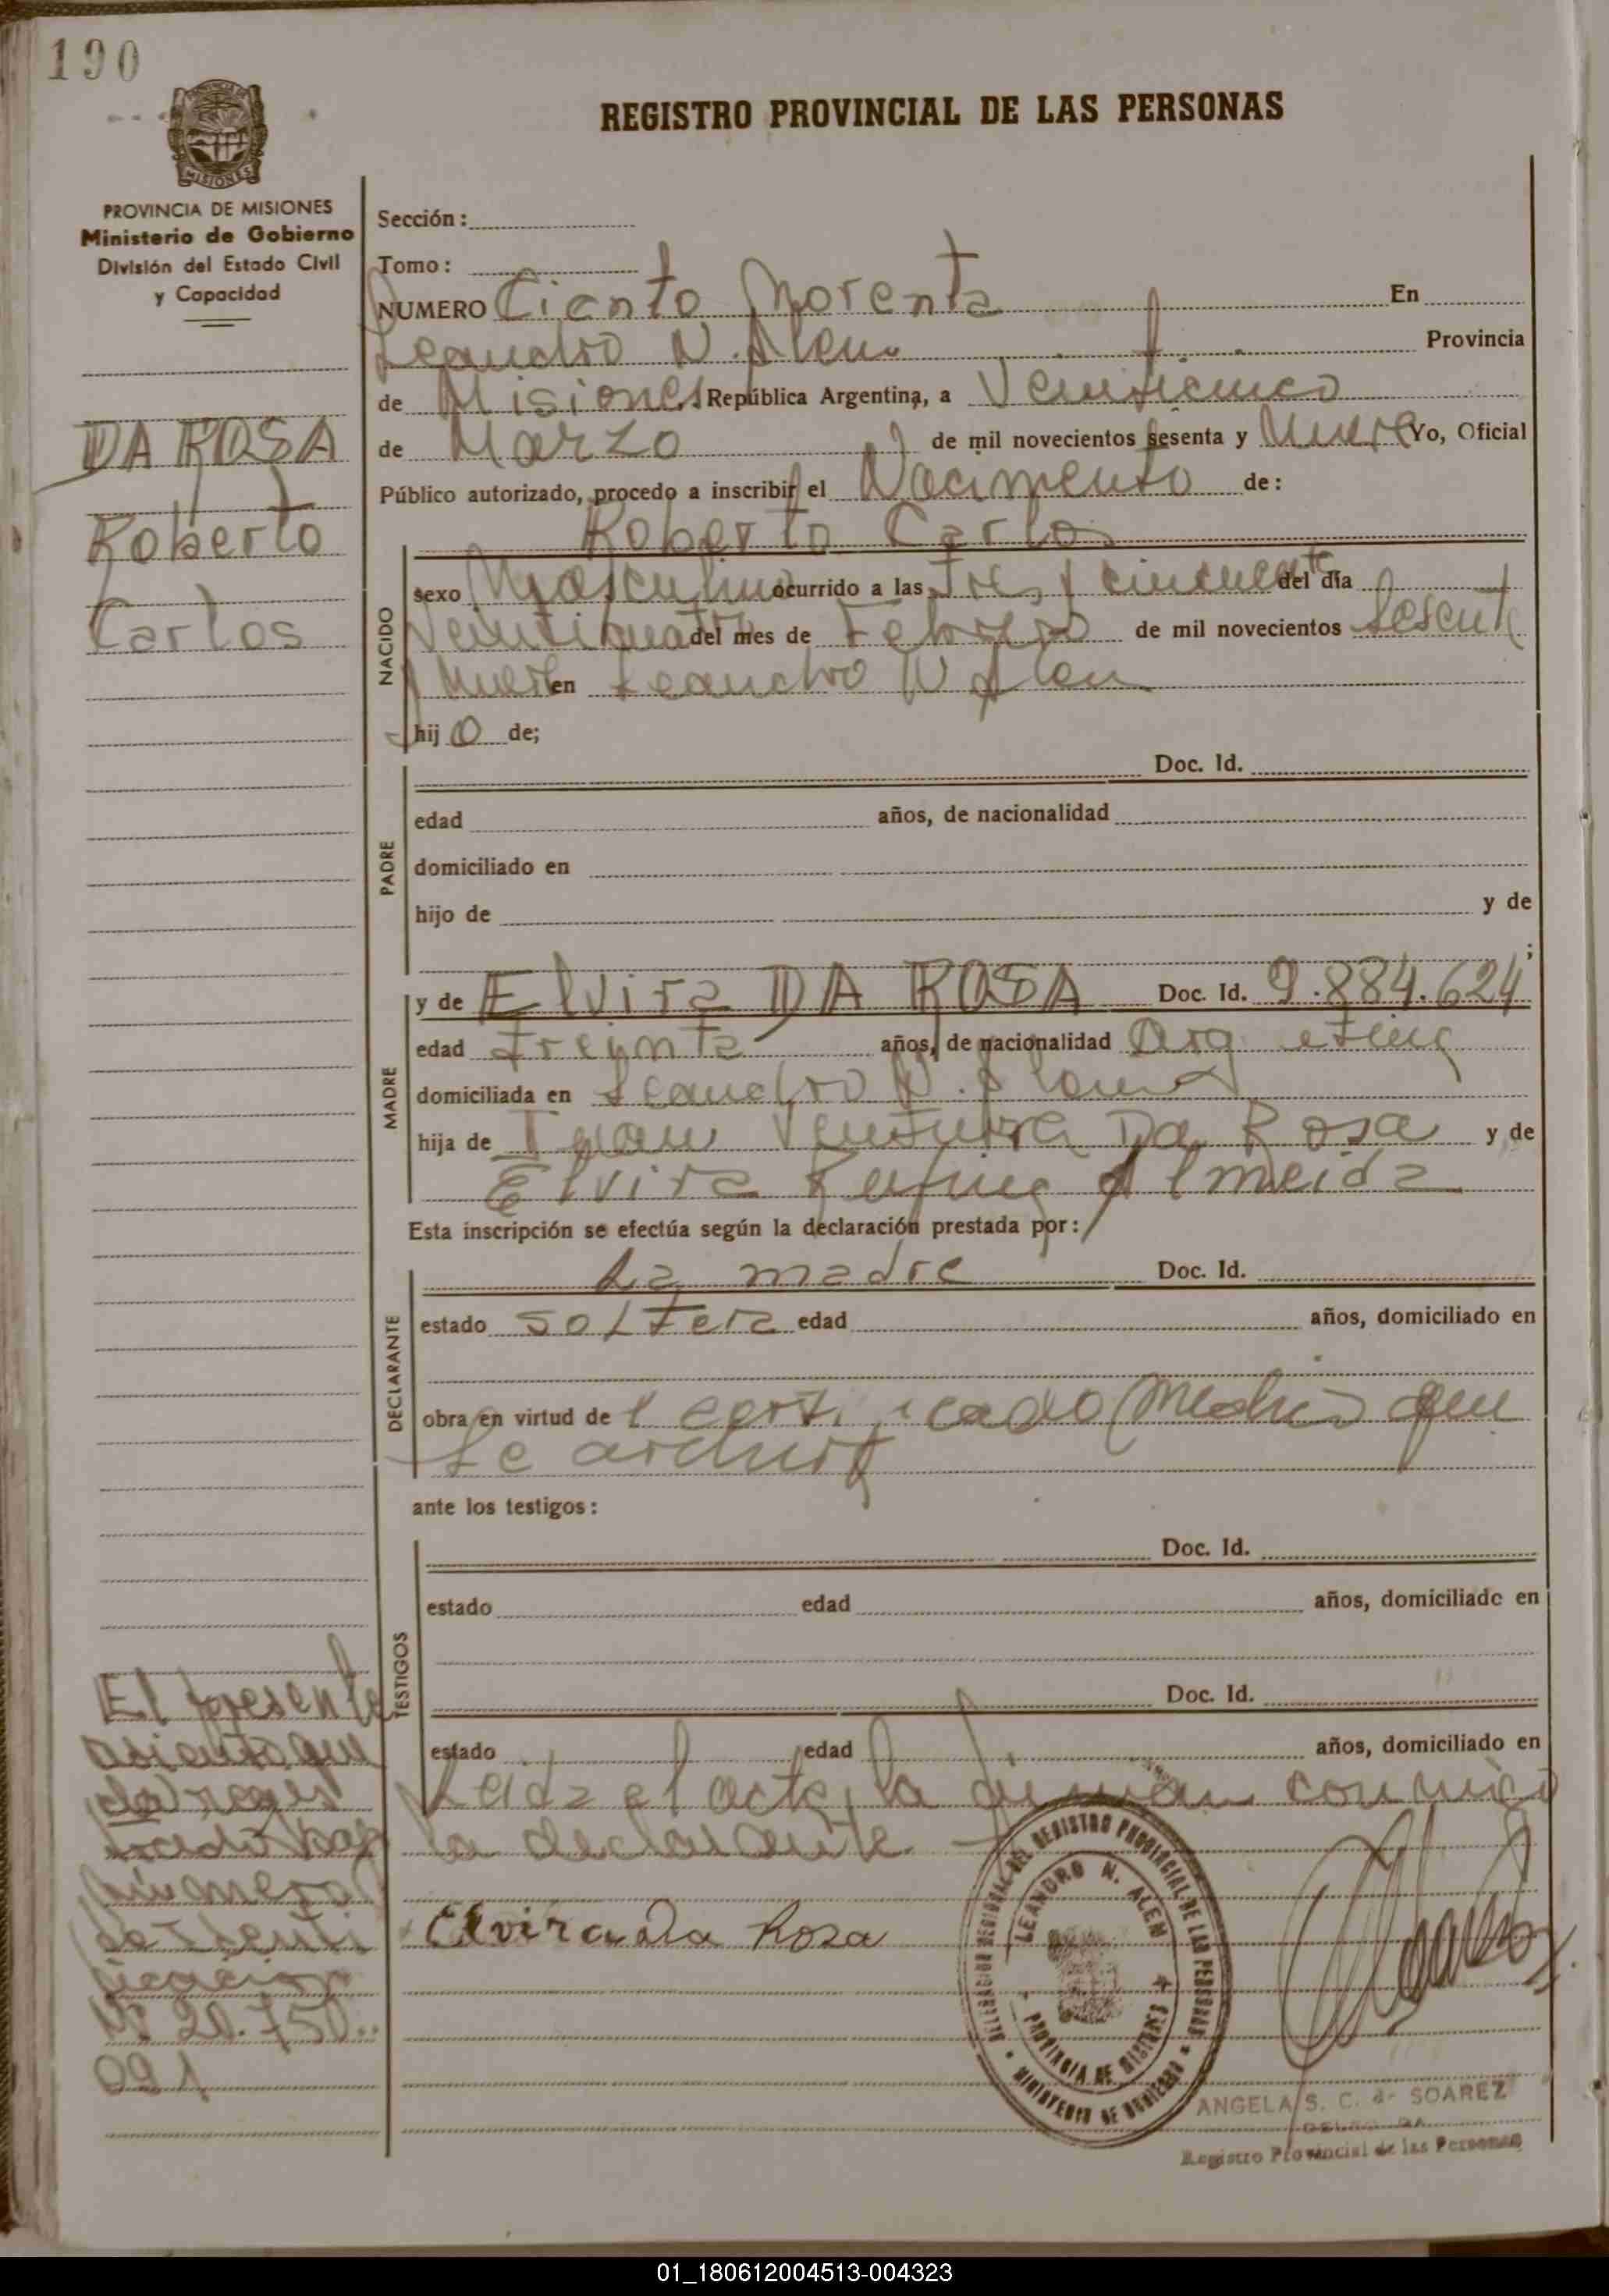 190
MISIONES
REGISTRO PROVINCIAL DE LAS PERSONAS
PROVINCIA DE MISIONES
Ministerio de Gobierno
División del Estado Civil
y Capacidad
DA ROSA
Roberto
Carlos
Sección:
Tomo:
NUMERO Ciento Norenta En
Leandro N. Alem Provincia
de Misiones República Argentina, a Veinticinco
de Marzo de mil novecientos sesenta y Nueve Yo, Oficial
Público autorizado, procedo a inscribir el Nacimento de:
Roberto Carlos
NACIDO
sexo Masculino ocurrido a las Tres y cincuenta del día
Veinticuatro del mes de Febrero de mil novecientos Sesenta
y Nueve en Leandro N Alem
hijo de;
PADRE
Doc. Id.
edad años, de nacionalidad
domiciliado en
hijo de y de
;
MADRE
y de Elvira DA ROSA Doc. Id. 9.884.624
edad Treinta años, de nacionalidad Argentina
domiciliada en Leandro N. Alem
hija de Juan Ventura Da Rosa y de
Elvira Almeida
Esta inscripción se efectúa según la declaración prestada por:
DECLARANTE
La madre Doc. Id.
estado soltera edad años, domiciliado en
obra en virtud de l certificado Medico que
se archiva
ante los testigos:
TESTIGOS
Doc. Id.
estado edad años, domiciliado en
Doc. Id.
estado edad años, domiciliado en
Leida el acta, la firman conmigo
la declarante
Elvira Da Rosa
El presente
asiento que
da regis
trado bajo
número
de Identi
ficación
Nº 20.750.
091
DELEGACION REGIONAL DEL REGISTRO PROVINCIAL DE LAS PERSONAS
LEANDRO N. ALEM
PROVINCIA DE MISIONES
MINISTERIO DE GOBIERNO
ANGELA S. C. de SOAREZ
Registro Provincial de las Personas
01_180612004513-004323